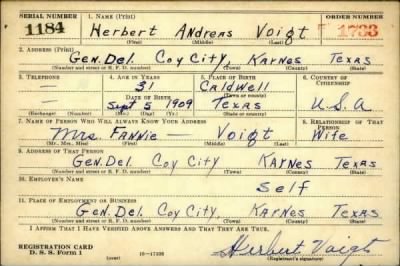 SERIAL NUMBER 1. NAME (Print) ORDER NUMBER
1184 Herbert Andreas Voigt 1733
(First) (Middle) (Last)
2. ADDRESS (Print)
Gen. Del. Coy City, Karnes Texas
(Number and street or R. F. D. number) (Town) (County) (State)
3. TELEPHONE 4. AGE IN YEARS 5. PLACE OF BIRTH 6. COUNTRY OF CITIZENSHIP
— 31 Caldwell
DATE OF BIRTH (Town or county)
— Sept 5 1909 Texas U.S.A
(Exchange) (Number) (Mo.) (Day) (Yr.) (State or country)
7. NAME OF PERSON WHO WILL ALWAYS KNOW YOUR ADDRESS 8. RELATIONSHIP OF THAT PERSON
Mrs. Fannie — Voigt Wife
(Mr., Mrs., Miss) (First) (Middle) (Last)
9. ADDRESS OF THAT PERSON
Gen. Del. Coy City Karnes Texas
(Number and street or R. F. D. number) (Town) (County) (State)
10. EMPLOYER'S NAME
Self
11. PLACE OF EMPLOYMENT OR BUSINESS
Gen. Del. Coy City, Karnes Texas
(Number and street or R. F. D. number) (Town) (County) (State)
I AFFIRM THAT I HAVE VERIFIED ABOVE ANSWERS AND THAT THEY ARE TRUE.
REGISTRATION CARD Herbert Voigt
D. S. S. Form 1 (over) 16—17105 (Registrant's signature)